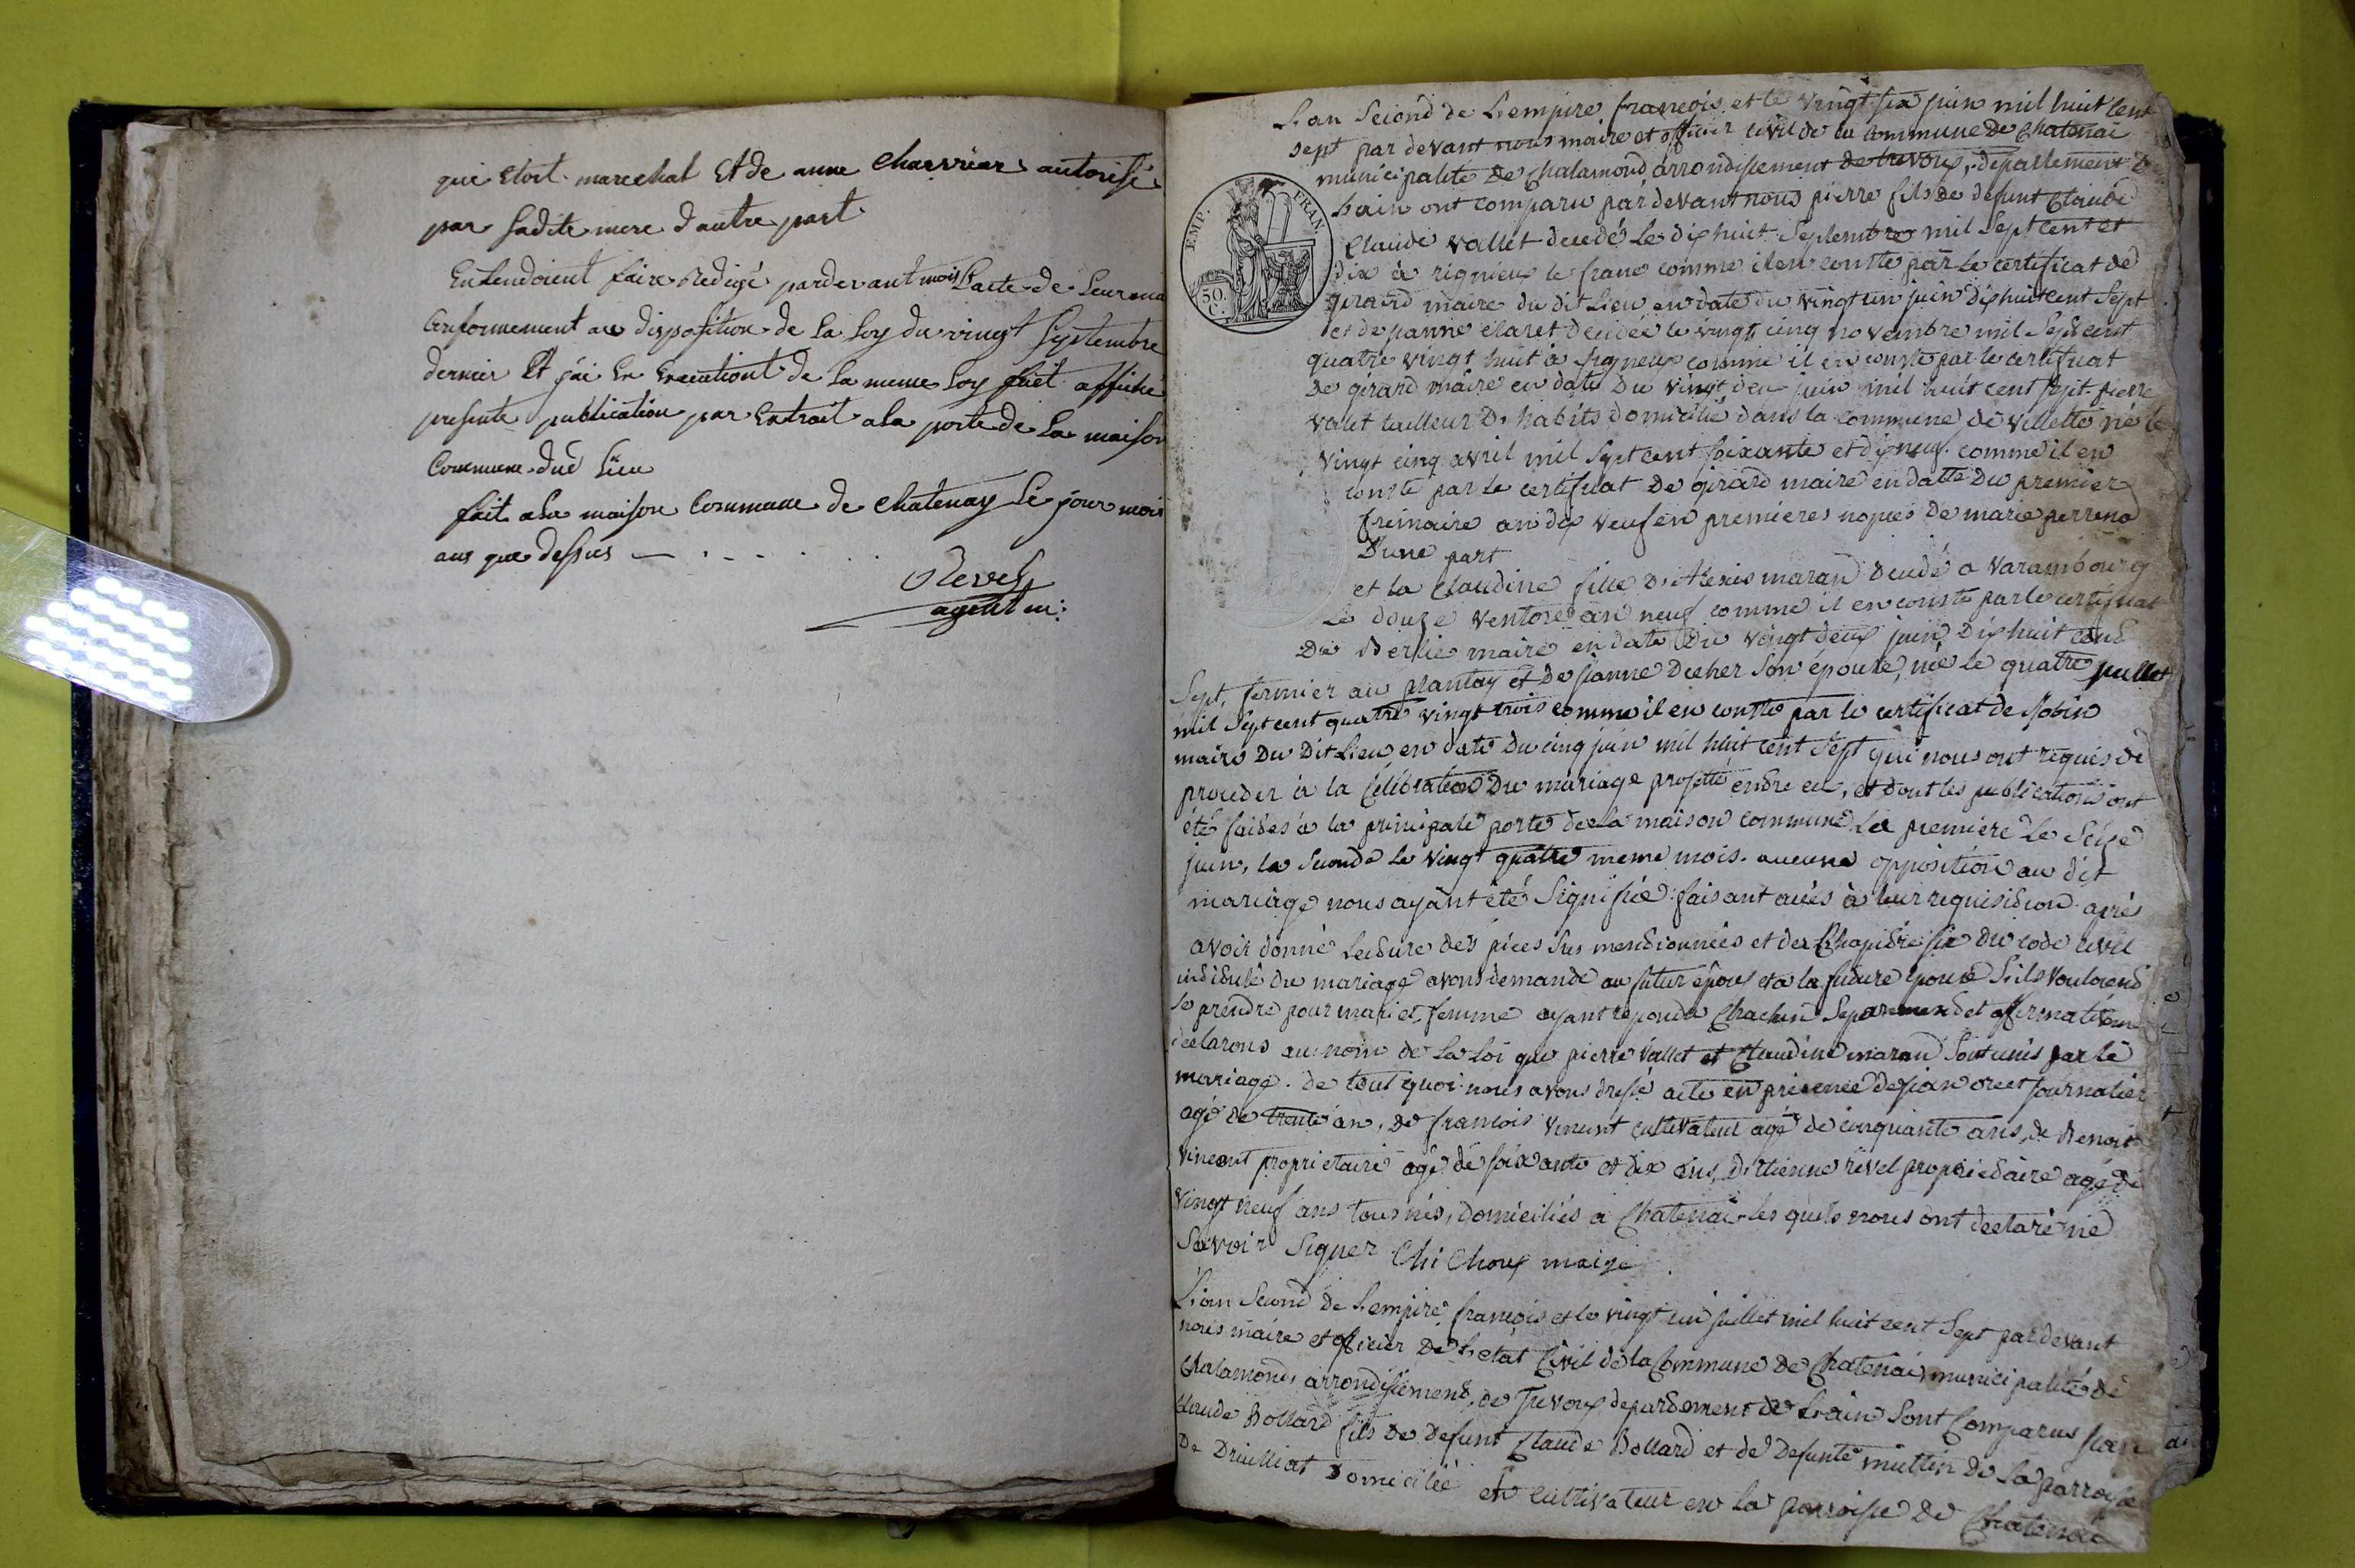 qui etoit marechal Et de anne Charvrier autorisé
par sadite mere d'autre part
Entendoient faire Redigé pardevant mois L'acte de Leur
Conformement au disposition de La Loy du vingt Septembre
dernier Et j'ai En Execution de La meme Loy fait affiché
presente publication par Extrait a la porte de La maison
Commune dud Lieu
fait a la maison Commune de Chatenay Le jour mois
ans que dessus
Revel
agent m:
EMP. FRAN
50. C.
L'an Second de L'empire françois et le vingt six juin mil huit cent
sept par devant nous maire et officier civil de la Commune de Chatenai
municipalité de Chalamond arrondissement de trevoux, departement
L'ain ont comparu par devant nous pierre fils de defunt Claude
Claude vallet decedé Le dix huit Septembre mil Sept cent et
dix à rignieux le franc comme il en conste par Le certificat de
girard maire du dit Lieu en date du vingt un juin dix huit cent Sept
et de janne claret decedée le vingt cinq novembre mil Sept cent
quatre vingt huit à rigneux comme il en conste par le certificat
De girard maire en date Du vingt deu juin mil huit cent sept. pierre
valet tailleur D'habits domicilié dans la commune de villette né le
vingt cinq avril mil Sept cent soixante et dix neuf. comme il en
conste par Le certificat De girard maire en datte Du premier
frimaire an dix veuf en premieres nopces De marie
D'une part
et la Claudine fille D'Alexis maran decedé a varambourg
Le douze ventose an neuf comme il en conste par le certificat
De maire en date Du vingt deux juin Dix huit cent
Sept, fermier au plantay et De janne Decher Son épouse, née Le quatre juillet
mil Sept cent quatre vingt trois comme il en conste par le certificat de Robin
maire Du Dit Lieu en date Du cinq juin mil huit cent Sept qui nous ont requis de
proceder à la Célébration Du mariage projetté entre eux, et dont les publications ont
été faites à la principale porte de la maison commune La premiere Le Seize
juin, la Seconde Le vingt quatre meme mois. aucune opposition au dit
mariage nous ayant été Signifiée faisant à leur requisition après
avoir donné Lecture des pices sus mentionnées et des Chapitre six Du code civil
intitulé Du mariage avons demandé au futur époux et a la future épouse S'ils vouloient
se prendre pour mari et femme ayant repondu Chacun Separement et affirmativement
declarons au nom de La Loi que pierre vallet et Claudine maran Sont unis par le
mariage. de tout quoi nous avons dressé acte en presence de jean journalier
agé de trente an, De francois vincent cultivateur agé de cinquante ans, de Benoit
vincent proprietaire agé de soixante et dix ans, D'etienne revel proprietaire agé de
vingt neuf ans tous nés, domiciliés a Chatenai Les quels nous ont declaré ne
Savoir Signer Chi Choux maire
L'an Second de L'empire françois et le vingt un juillet mil huit cent Sept par devant
nous maire et officier De L'etat Civil de la Commune De Chatenai municipalité de
Chalamond, arrondissement, de Trevoux departement de L'ain Sont Comparus jean
Claude Bollard fils De Defunt Claude Bollard et de Defunte De La parroisse
De Druilliat Domicilié et cultivateur en La parroisse De Chatenai